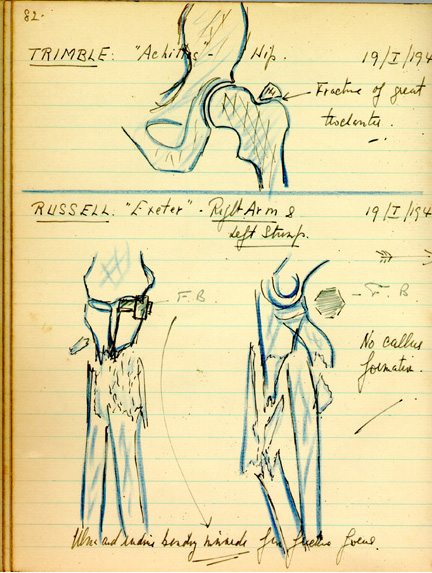 82.
TRIMBLE: "Achilles" - Hip. 19/I/194
Fracture of great
trochanter.
RUSSELL. "Exeter" - Right Arm & 19/I/194
Left Stump.
F. B.
F. B.
No callus
formation.
Ulna and radius bending inwards for